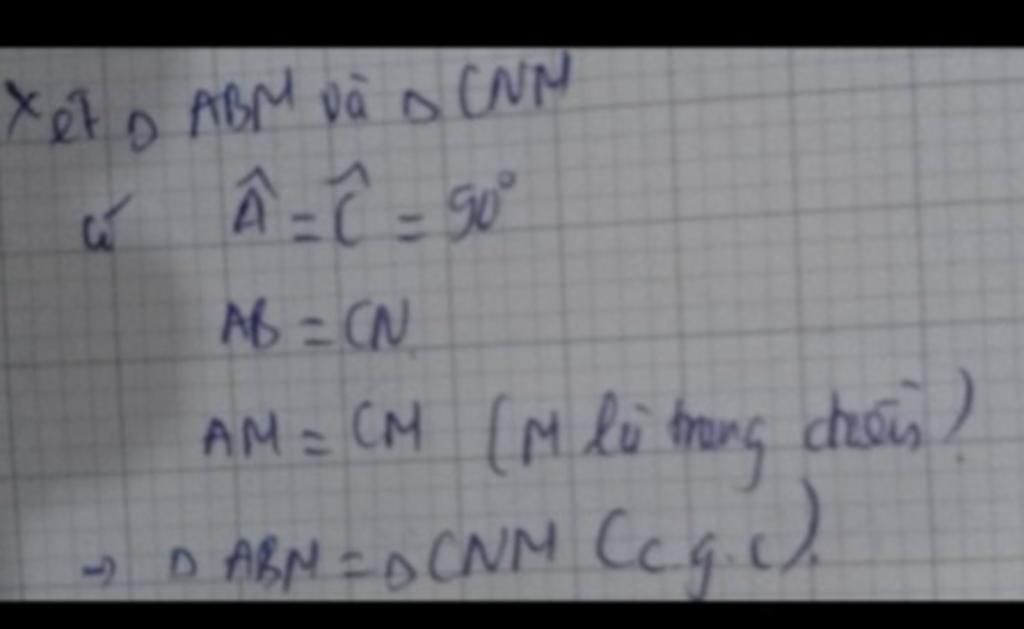 Xét Δ ABM và Δ CNM
có Â = Ĉ = 90°
AB = CN
AM = CM (M là trung
→ Δ ABM = Δ CNM (c.g.c).